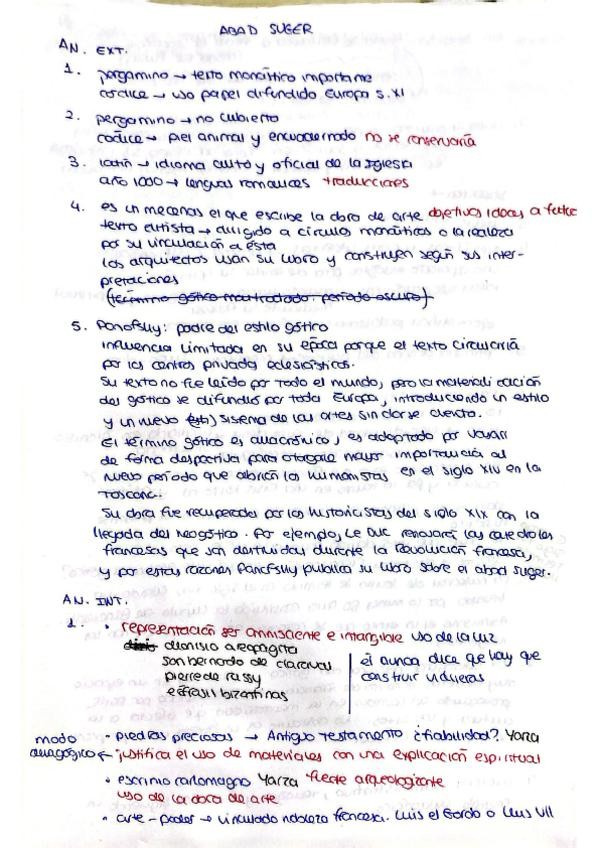 ABAD SUGER
AN. EXT.
1. pergamino → texto monástico importante
códice → uso papel difundido Europa s. XI
2. pergamino → no cubierto
códice → piel animal y encuadernado no se conservaría
3. latín → idioma culto y oficial de la Iglesia
año 1000 → lenguas romances traducciones
4. es un mecenas el que escribe la obra de arte objetivos idoas a
texto elitista → dirigido a círculos monásticos o la realeza
por su vinculación a ésta
los arquitectos usan su libro y construyen según sus inter-
pretaciones
(término gótico maltratado: período oscuro)
5. Panofsky: padre del estilo gótico
influencia limitada en su época porque el texto circularía
por los centros privados eclesiásticos.
Su texto no fue leído por todo el mundo, pero la materialización
del gótico se difundió por toda Europa, introduciendo un estilo
y un nuevo sistema de las artes sin darse cuenta.
El término gótico es anacrónico, es adoptado por Vasari
de forma despectiva para otorgarle mayor importancia al
nuevo período que abrían los humanistas en el siglo XIV en la
Toscana.
Su obra fue recuperada por los historicistas del siglo XIX con la
llegada del neogótico. Por ejemplo, Le Duc renovará las catedrales
francesas que son destruidas durante la Revolución francesa,
y por estas razones Panofsky publica su libro sobre el abad Suger.
AN. INT.
1. • representación ser omnisciente e intangible uso de la luz
dionisio areopagita
san bernardo de claraval
pierre de
bizantinas
él nunca dice que hay que
construir vidrieras
• piedras preciosas → Antiguo Testamento ¿fiabilidad? Yarza
modo
anagógico ← justifica el uso de materiales con una explicación espiritual
• escrinio carlomagno Yarza fuente
uso de la obra de arte
• arte - poder → vinculado nobleza francesa. Luis el Gordo o Luis VII